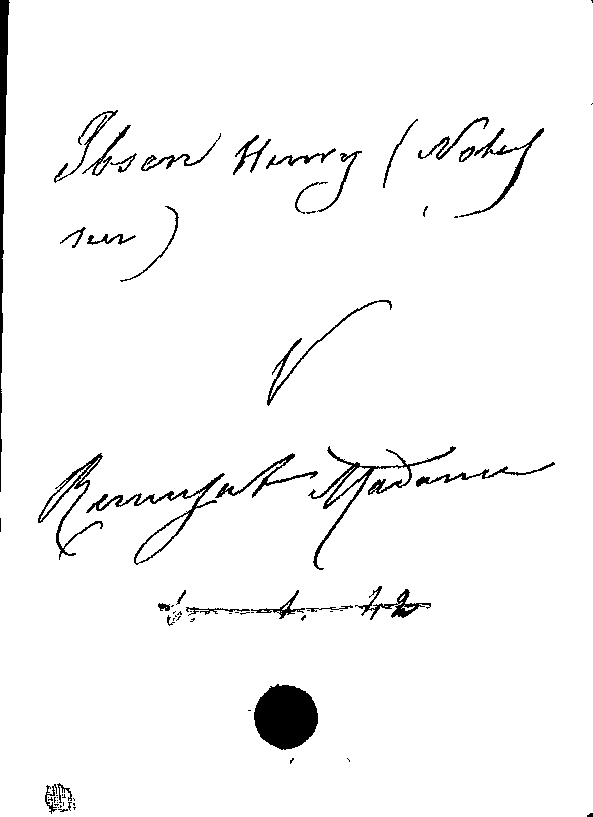 Ibsen Henry (Notes
sur)
V
Remusat Madame
6. 1. 42